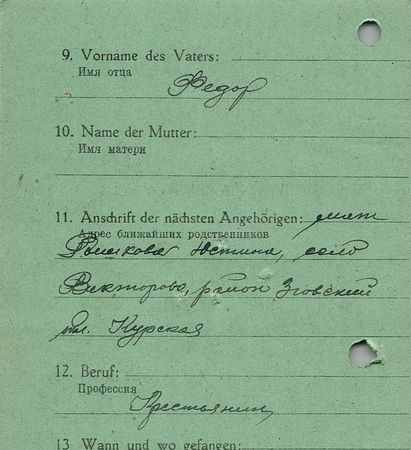 9. Vorname des Vaters:
Имя отца
Федор
10. Name der Mutter:
Имя матери
11. Anschrift der nächsten Angehörigen: мат
Адрес ближайших родственников
Устина, село
Викторово, район
обл. Курская
12. Beruf:
Профессия
Крестьянин
13 Wann und wo gefangen: